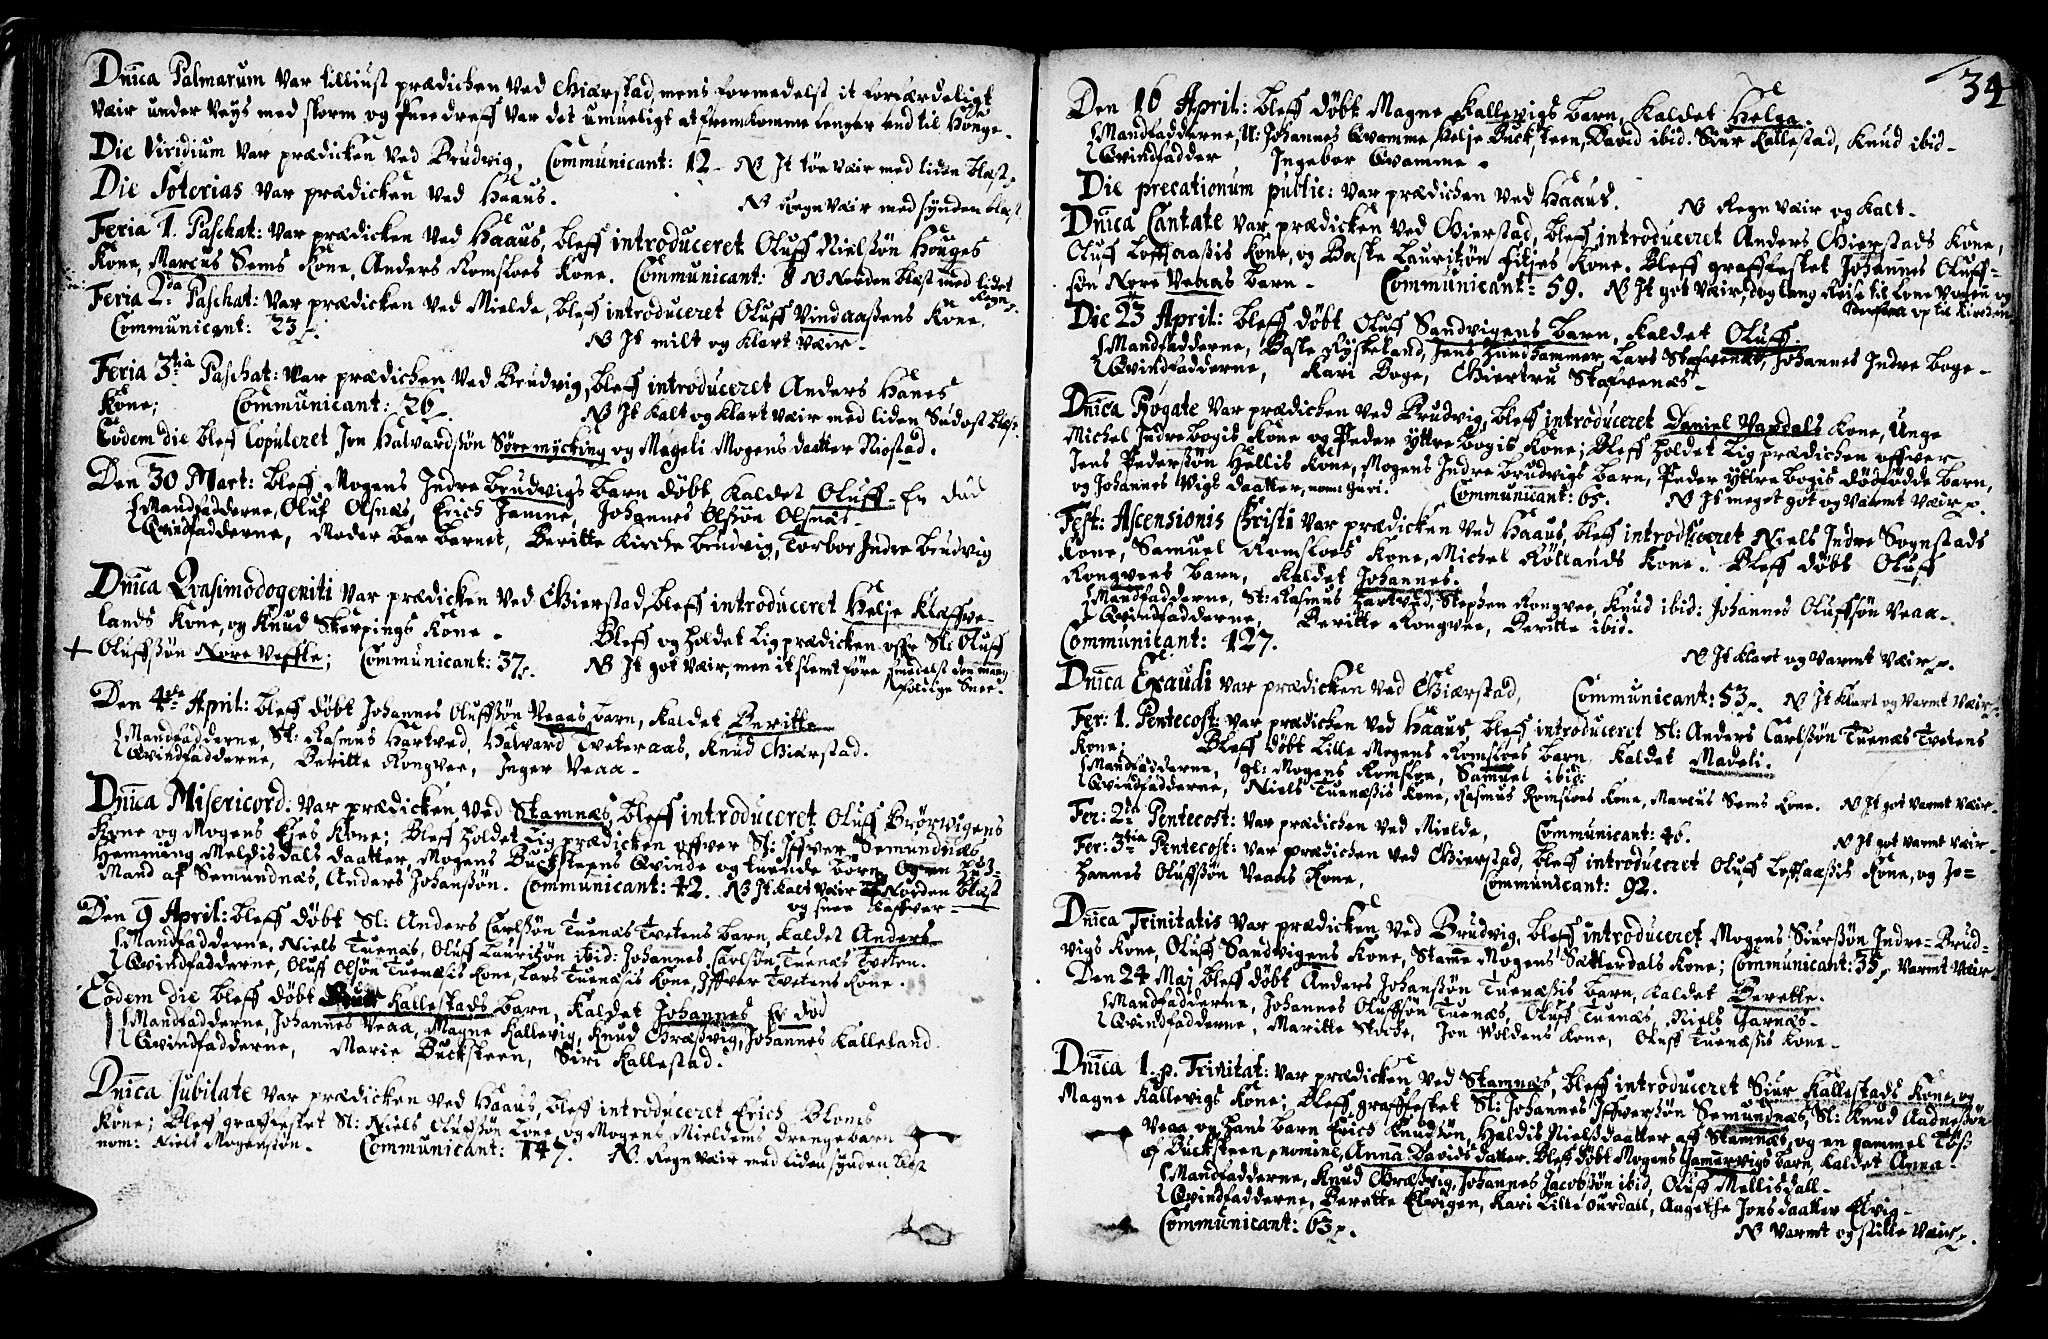 Dn̄ica Palmarum var tilliust prædichen ved Giærstad, mens formedelst it forfærdeligt
væir under veys med storm og sneedreff var det umueligt at fremkomme lenger end til Houge.
Die Viridium var prædicken ved Brudvig, Communicant: 12 NB It tön væir med liden blæst.
Die Soterias var prædicken ved Haaus. NB Regn væir med synden blæst
Feria 1. Paschat: var prædicken ved Haaus, bleff introduceret Oluff Nielssön Houges
Kone, Marcus Sems Kone, Anders Romsloes Kone. Communicant: 8 NB Norden blæst med lidet
Regn.
Feria 2da Paschat: var prædicken ved Mielde, bleff introduceret Oluff Vindaassens Kone.
Communicant: 23. NB It milt og klart væir.
Feria 3tia Paschat: var prædichen ved Brudvig, bleff introduceret Anders Hanes
Kone; Communicant: 26 NB It kalt og klart væir med liden Sudost blæst.
Eodem die bleff Copuleret Jon Halvardssön Söre mycking og Mageli Mogens daatter Niostad.
Den 30 Mart: bleff Mogens Indre brudvigs barn döbt, kaldet Oluff. Er död
Mandfadderne, Oluf Olsnæs, Erich Jamne, Johannes Olssön Olsnæs.
Qvindfadderne, Moder bar barnet, Beritte Kirche brudvig, Torbor Indre brudvig
Dn̄ica Qvasimodogeniti var prædicken ved Gierstad, bleff introduceret Helje Klæffve-
lands Kone, og Knud Skerpings Kone. Bleff og holdet ligprædicken offr Sl: Oluff
+ Oluffssön Nore Veffle; Communicant: 37. NB It got væir, men it slemt före formedelst den mang-
foldige Snee.
Den 4de April: bleff döbt Johannes Oluffssön Veaas barn, kaldet Beritte
Mandfadderne, St: Rasmus Hartved, Halvard Tveteraas, Knud Giærstad.
Qvindfadderne, Beritte Rongvee, Inger Veaa.
Dn̄ica Misericord: var prædicken ved Stamnæs, bleff introduceret Oluff Brörvigens
Kone og Mogens Ejes Kone; Bleff holdet lig prædicken offver Sl: Iffver Semundnæs
Hemming Meldisdals daatter, Mogens Bucksteens Qvinde og tuende börn, Og en Huus-
Mand af Semundnæs, Anders Johanssön. Communicant: 42. NB It kalt væir Norden blæst
og snee kaffver.
Den 9 April: bleff döbt Sl: Anders Carlssön Tuenæs Tvetens barn, kaldet Anders
Mandfadderne, Niels Tuenæs, Oluff Lauritzön ibid: Johannes Carlsön Tuenæs Tveten.
Qvindfadderne, Oluff Olsön Tuenæsis Kone, Lars Tuenæsis Kone, Iffver Tvetens Kone.
Eodem die bleff döbt Kallestads barn, kaldet Johannes Er död
Mandfadderne, Johannes Veaa, Magne Kallevig, Knud Græsvig, Johannes Kalleland.
Qvindfadderne, Marie Bucksteen, Siri Kallestad.
Dn̄ica Jubilate var prædicken ved Haaus, bleff introduceret Erich Bloms
Kone; Bleff graffestet Sl: Niels Olufssön Lone og Mogens Mieldems drengebarn
nom: Niels Mogenssön. Communicant: 147. N. Regn væir med liden synden blæst
34
Den 16 April: bleff döbt Magne Kallevigs barn, kaldet Helga.
Mandfadderne, N: Johannes Qvamme, Helje Bucksteen, David ibid. Siur Kallestad, Knud ibid.
Qvindfadder Ingebor Qvamme.
Die precationum public: var prædichen ved Haaus. NB Regn væir og kalt.
Dn̄ica Cantate var prædicken ved Gierstad, bleff introduceret Anders Gierstads Kone,
Oluff Loffaassis Kone, og Baste Lauritzön Filjes Kone. Bleff graffestet Johannes Oluff-
sön Nore Veaas barn. Communicant: 59. NB It got væir, dog lang Reise til Lone Voren og
derfraa op til Kirchen
Die 23 April: bleff döbt Oluff Sandvigens barn, kaldet Oluff.
Mandfadderne, Baste Ryskeland, Jens Hundhammer, Lars Stafvenæs, Johannes Indre boge.
Qvindfadderne, Kari Boge, Giertru Stafvenæs.
Dn̄ica Rogate var prædicken ved Brudvig, bleff introduceret Daniel Vaxdals Kone, Unge
Michel Indrebogis Kone og Peder Yttrebogis Kone; Bleff holdet Lig prædichen offver
Jens Pederssön Hellis Kone, Mogens Indre brudvigs barn, Peder Yttre bogis dödfödde barn,
og Johannes Vigs daatter, nom: Guri. Communicant: 65. NB It meget got og varmt væir.
Fest: Ascensionis Christi var prædicken ved Haaus, bleff introduceret Niels Indre Sognstads
Kone, Samuel Romsloes Kone, Michel Röllands Kone. Bleff döbt Oluff
Rongvees barn, kaldet Johannes.
Mandfadderne, St: Rasmus Hartved, Stephen Rongvee, Knud ibid: Johannes Oluffsön Veaa.
Qvindfadderne, Beritte Rongvee, Beritte ibid.
Communicant: 127. NB It klart og varmt væir.
Dn̄ica Exaudi var prædicken ved Giærstad, Communicant: 53. NB It klart og varmt væir.
Fer: 1. Pentecost: var prædicken ved Haaus, bleff introduceret Sl: Anders Carlssön Tuenæs Tvetens
Kone; Bleff döbt Lille Mogens Romsloes barn, kaldet Madeli.
Mandfadderne, gl: Mogens Romsloe, Samuel ibid:
Qvindfadderne, Niels Tuenæssis Kone, Rasmus Romsloes Kone, Marcus Sems Kone. NB It got varmt væir.
Fer: 2da Pentecost: var prædichen ved Mielde, Communicant: 46. NB It got varmt væir.
Fer: 3tia Pentecost: var prædichen ved Gierstad, bleff introduceret Oluff Loffaasis Kone, og Jo-
hannes Oluffsön Veaas Kone, Communicant: 92.
Dn̄ica Trinitatis var prædicken ved Brudvig, bleff introduceret Mogens Siurssön Indre-Brud-
vigs Kone, Oluff Sandvigens Kone, Stam̄e Mogens Sætterdals Kone; Communicant: 35. varmt væir
Den 24 Maj bleff döbt Anders Johanssön Tuenæssis barn, kaldet Berette.
Mandfadderne, Johannes Oluffsön Tuenæs, Oluff Tuenæs, Niels Garnæs.
Qvindfadderne, Maritte Stoche, Jon Woldens Kone, Oluff Tuenæssis Kone.
Dn̄ica 1. p. Trinitat: var prædicken ved Stamnæs, bleff introduceret Siur Kallestads Kone, og
Magne Kallevigs Kone; Bleff graffestet Sl: Johannes Iffverssön Semundnæs, Sl: Knud Aadnessön
Veaa og hans barn Erich Knudsön, Haldis Nielssdaatter af Stamnæs, og en gammel Töss
af Bucksteen, nomine, Anna Davids datter. Bleff döbt Mogens Jamnervigs barn, kaldet Anna.
Mandfadderne, Knud Græsvig, Johannes Jacobssön ibid, Oluff Mellisdall.
Qvindfadderne, Berette Elvigen, Kari Lille Ourdall, Aagethe Jonsdaatter Elvig.
Communicant: 63. NB Varmt og stille væir.